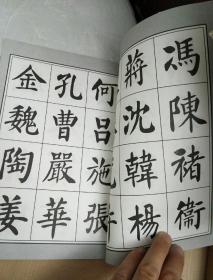 馮陳褚衞
蔣沈韓楊
何呂施張
孔曹嚴華
金魏陶姜